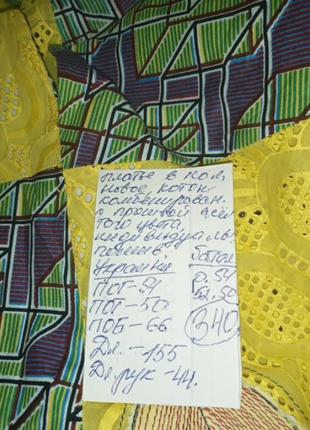 платье в пол,
новое, котон
комбенирован.
с прошвой жел
того цвета
индивидуальн
пошив батал
Украина р. 54
ПОГ-54 52.50
ПОТ-50
ПОБ-66 340
Дл.-155
Дл.рук-44.